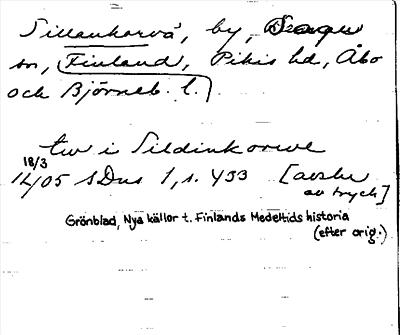 Sillankorvá, by,
sn, Finland, Pikis hd, Åbo
och Björneb. l.
tw i Sildinkorwe
18/3
12/05 SDns 1, s. 433 [avskr
av tryck]
Grönblad, Nya källor t. Finlands Medeltids historia
(efter orig.)